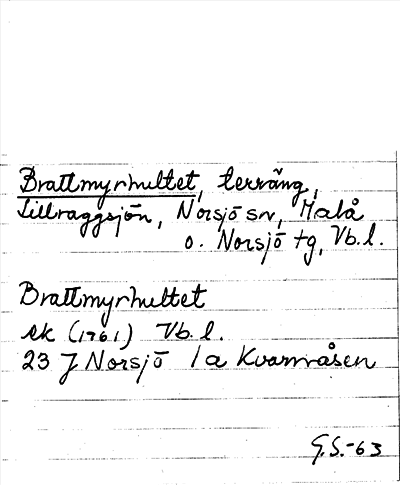 Brattmyrhultet, terräng,
Lillraggsjön, Norsjö sn, Malå
o. Norsjö tg, Vb.l.
Brattmyrhultet
ek (1961) Vb.l.
23 J Norsjö 1a Kvarnåsen
G.S.-63